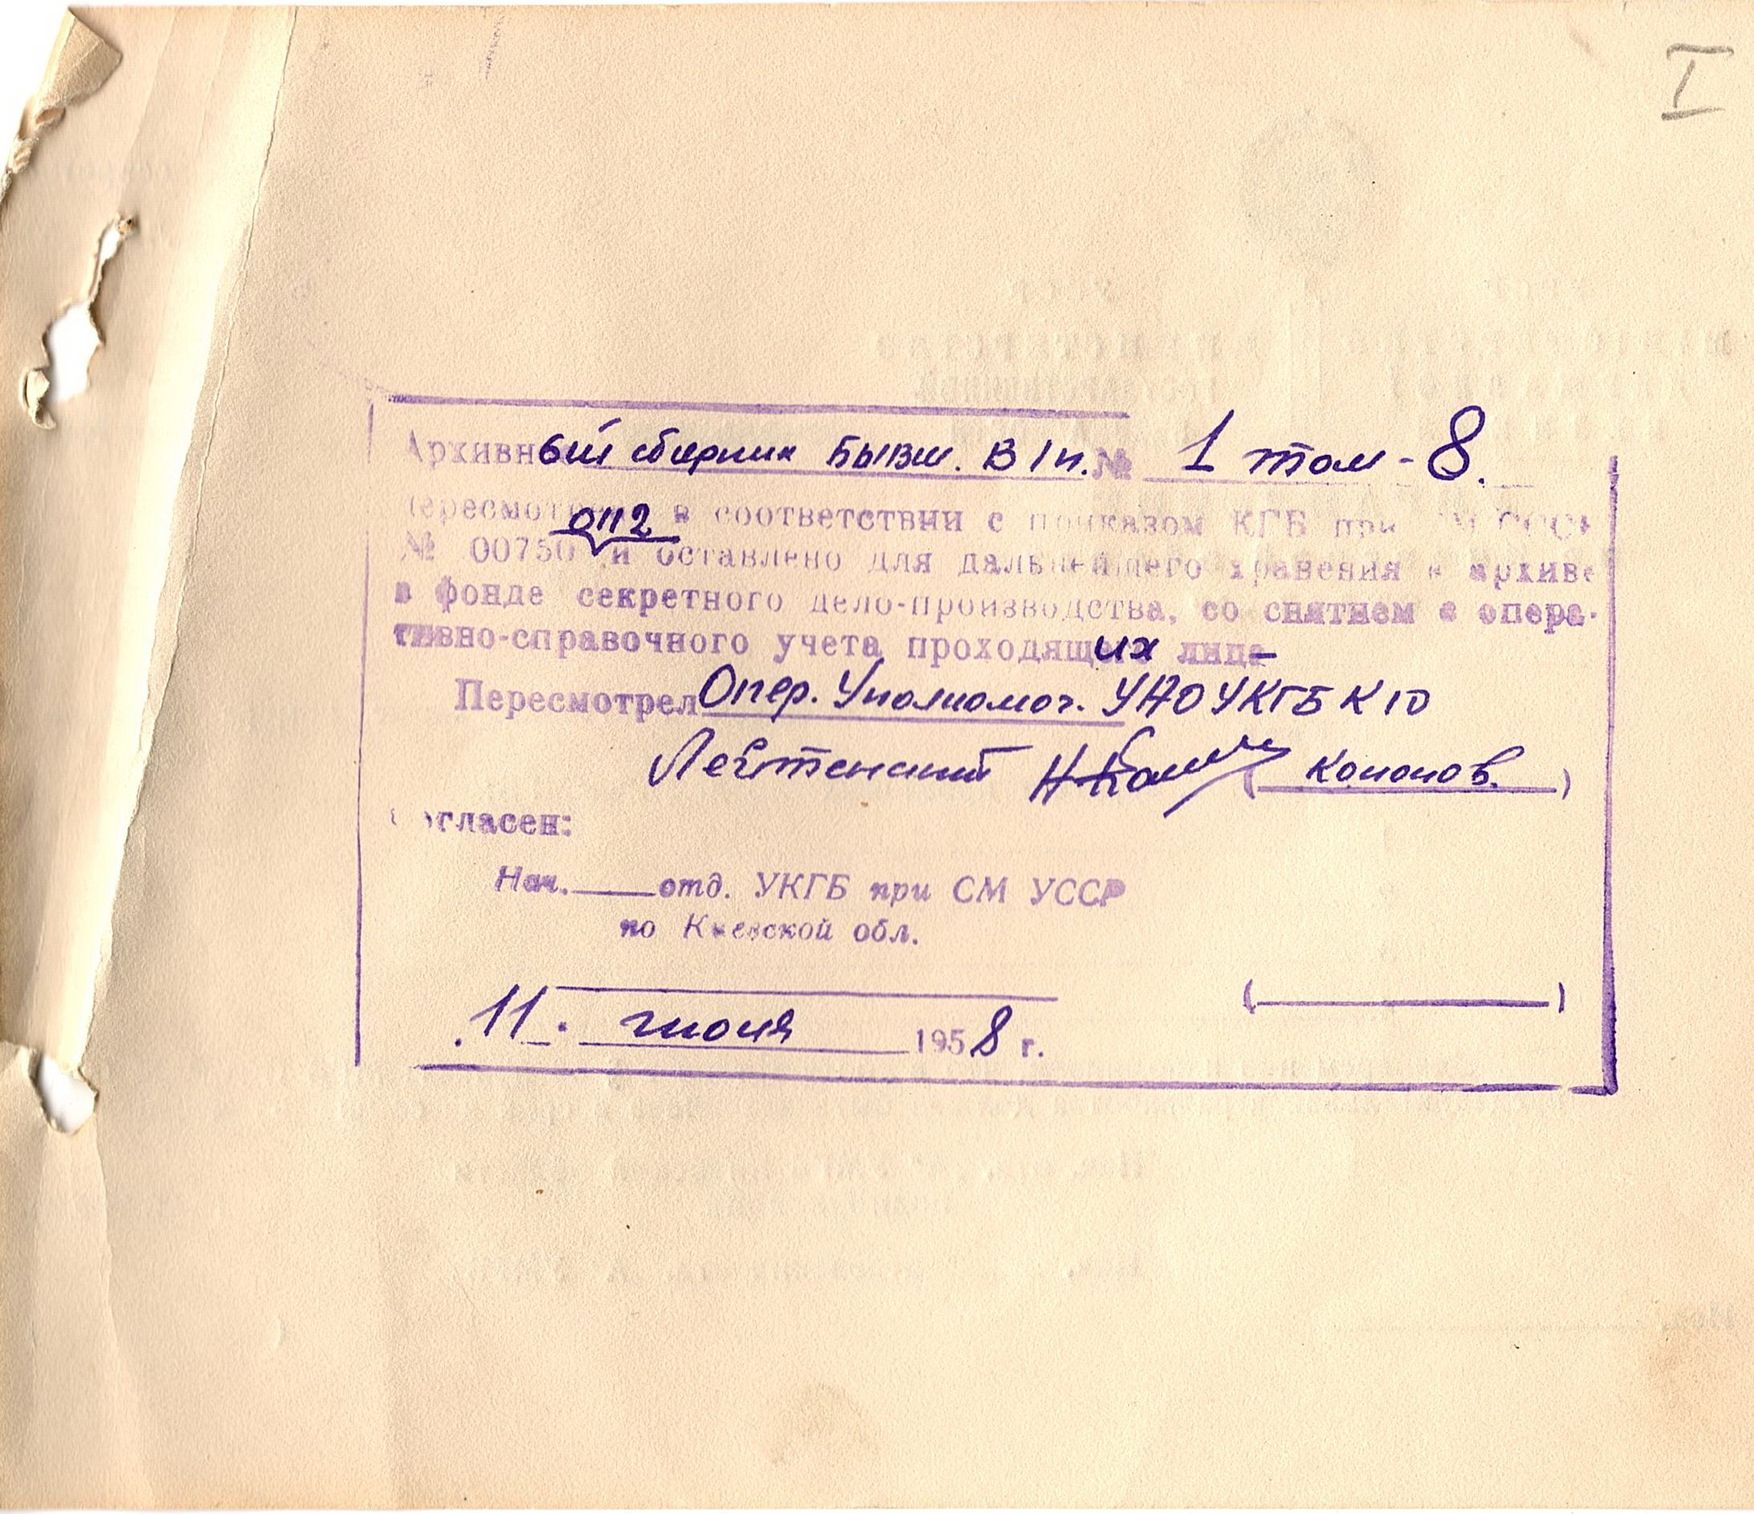 I
Архивный сборник бывш. В 1 п. № 1 том - 8.
Пересмотрено в соответствии с приказом КГБ при СМ СССР
0112
№ 00750 и оставлено для дальнейшего хранения в архиве
в фонде секретного дело-производства, со снятием с опера-
тивно-справочного учета проходящих лиц
Пересмотрел Опер. Уполномоч. УАО УКГБ К10
Лейтенант (Кононов.)
Согласен:
Нач. отд. УКГБ при СМ УССР
по Киевской обл.
( )
11. июня 1958 г.